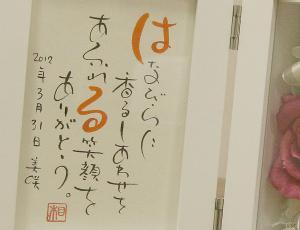 はなびらに
香るしあわせを
あふれる笑顔を
ありがとう。
2012年3月31日 美咲